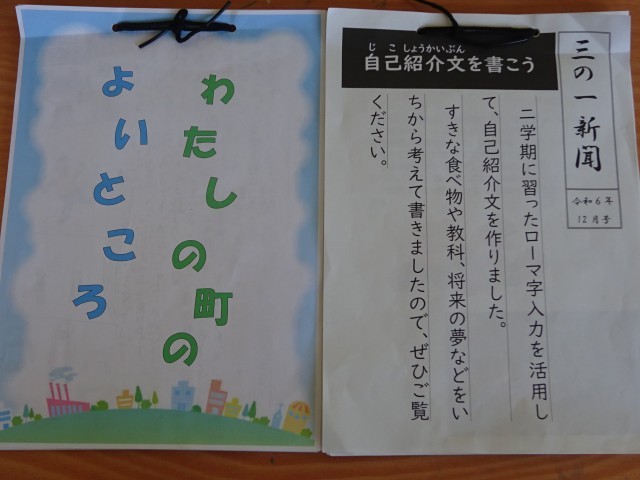 わたしの町の
よいところ
三の一新聞
令和6年
12月号
じこしょうかいぶん
自己紹介文を書こう
二学期に習ったローマ字入力を活用し
て、自己紹介文を作りました。
すきな食べ物や教科、将来の夢などをい
ちから考えて書きましたので、ぜひご覧
ください。